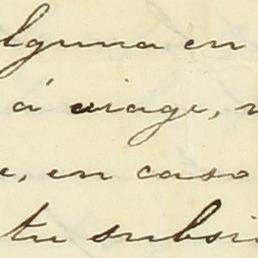 lguna en
á viage,
e, en caso
tu subsi